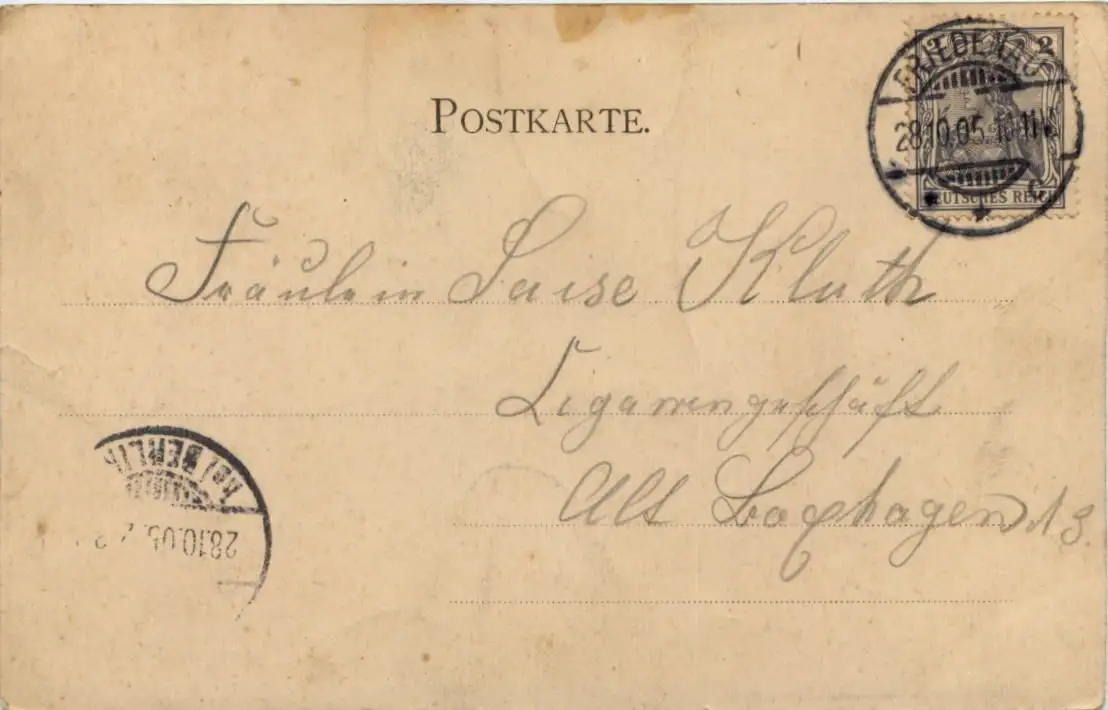 POSTKARTE.
2
FRIEDENAU
28.10.05.
DEUTSCHES REICH
Fräulein Luise Kluth
Cigarrengeschäft
Alt Boxhagen 13.
BERLIN
28.10.05.